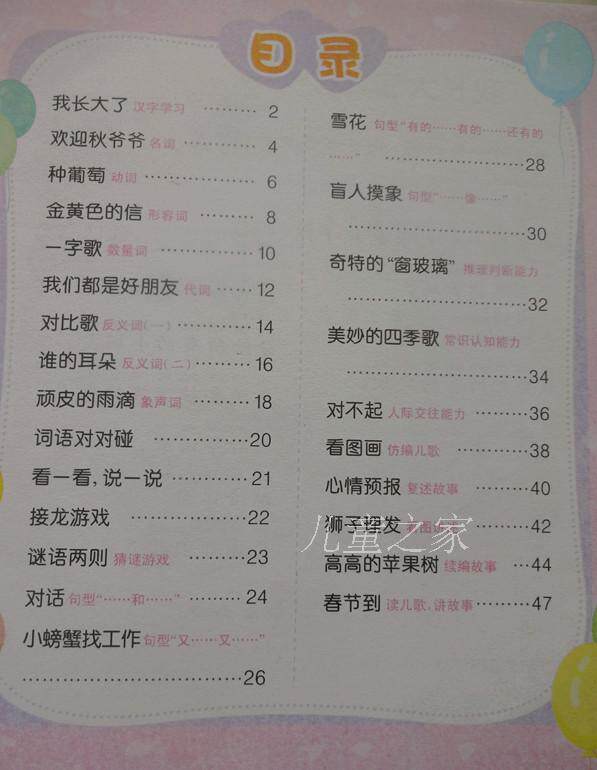 目录
我长大了 汉字学习 ……… 2
欢迎秋爷爷 名词 ………… 4
种葡萄 动词 ……………… 6
金黄色的信 形容词 ……… 8
一字歌 数量词 …………… 10
我们都是好朋友 代词 …… 12
对比歌 反义词(一) ……… 14
谁的耳朵 反义词(二) …… 16
顽皮的雨滴 象声词 ……… 18
词语对对碰 ……………… 20
看一看,说一说 ………… 21
接龙游戏 ………………… 22
谜语两则 猜谜游戏 ……… 23
对话 句型“……和……” ……… 24
小螃蟹找工作 句型“又……又……”
…………………………… 26
雪花 句型“有的……有的……还有的
……” ……………………… 28
盲人摸象 句型“……像……”
…………………………… 30
奇特的“窗玻璃” 推理判断能力
…………………………… 32
美妙的四季歌 常识认知能力
…………………………… 34
对不起 人际交往能力 …… 36
看图画 仿编儿歌 ………… 38
心情预报 复述故事 ……… 40
狮子理发 ……… 42
高高的苹果树 续编故事 … 44
春节到 读儿歌,讲故事 ……… 47
儿童之家